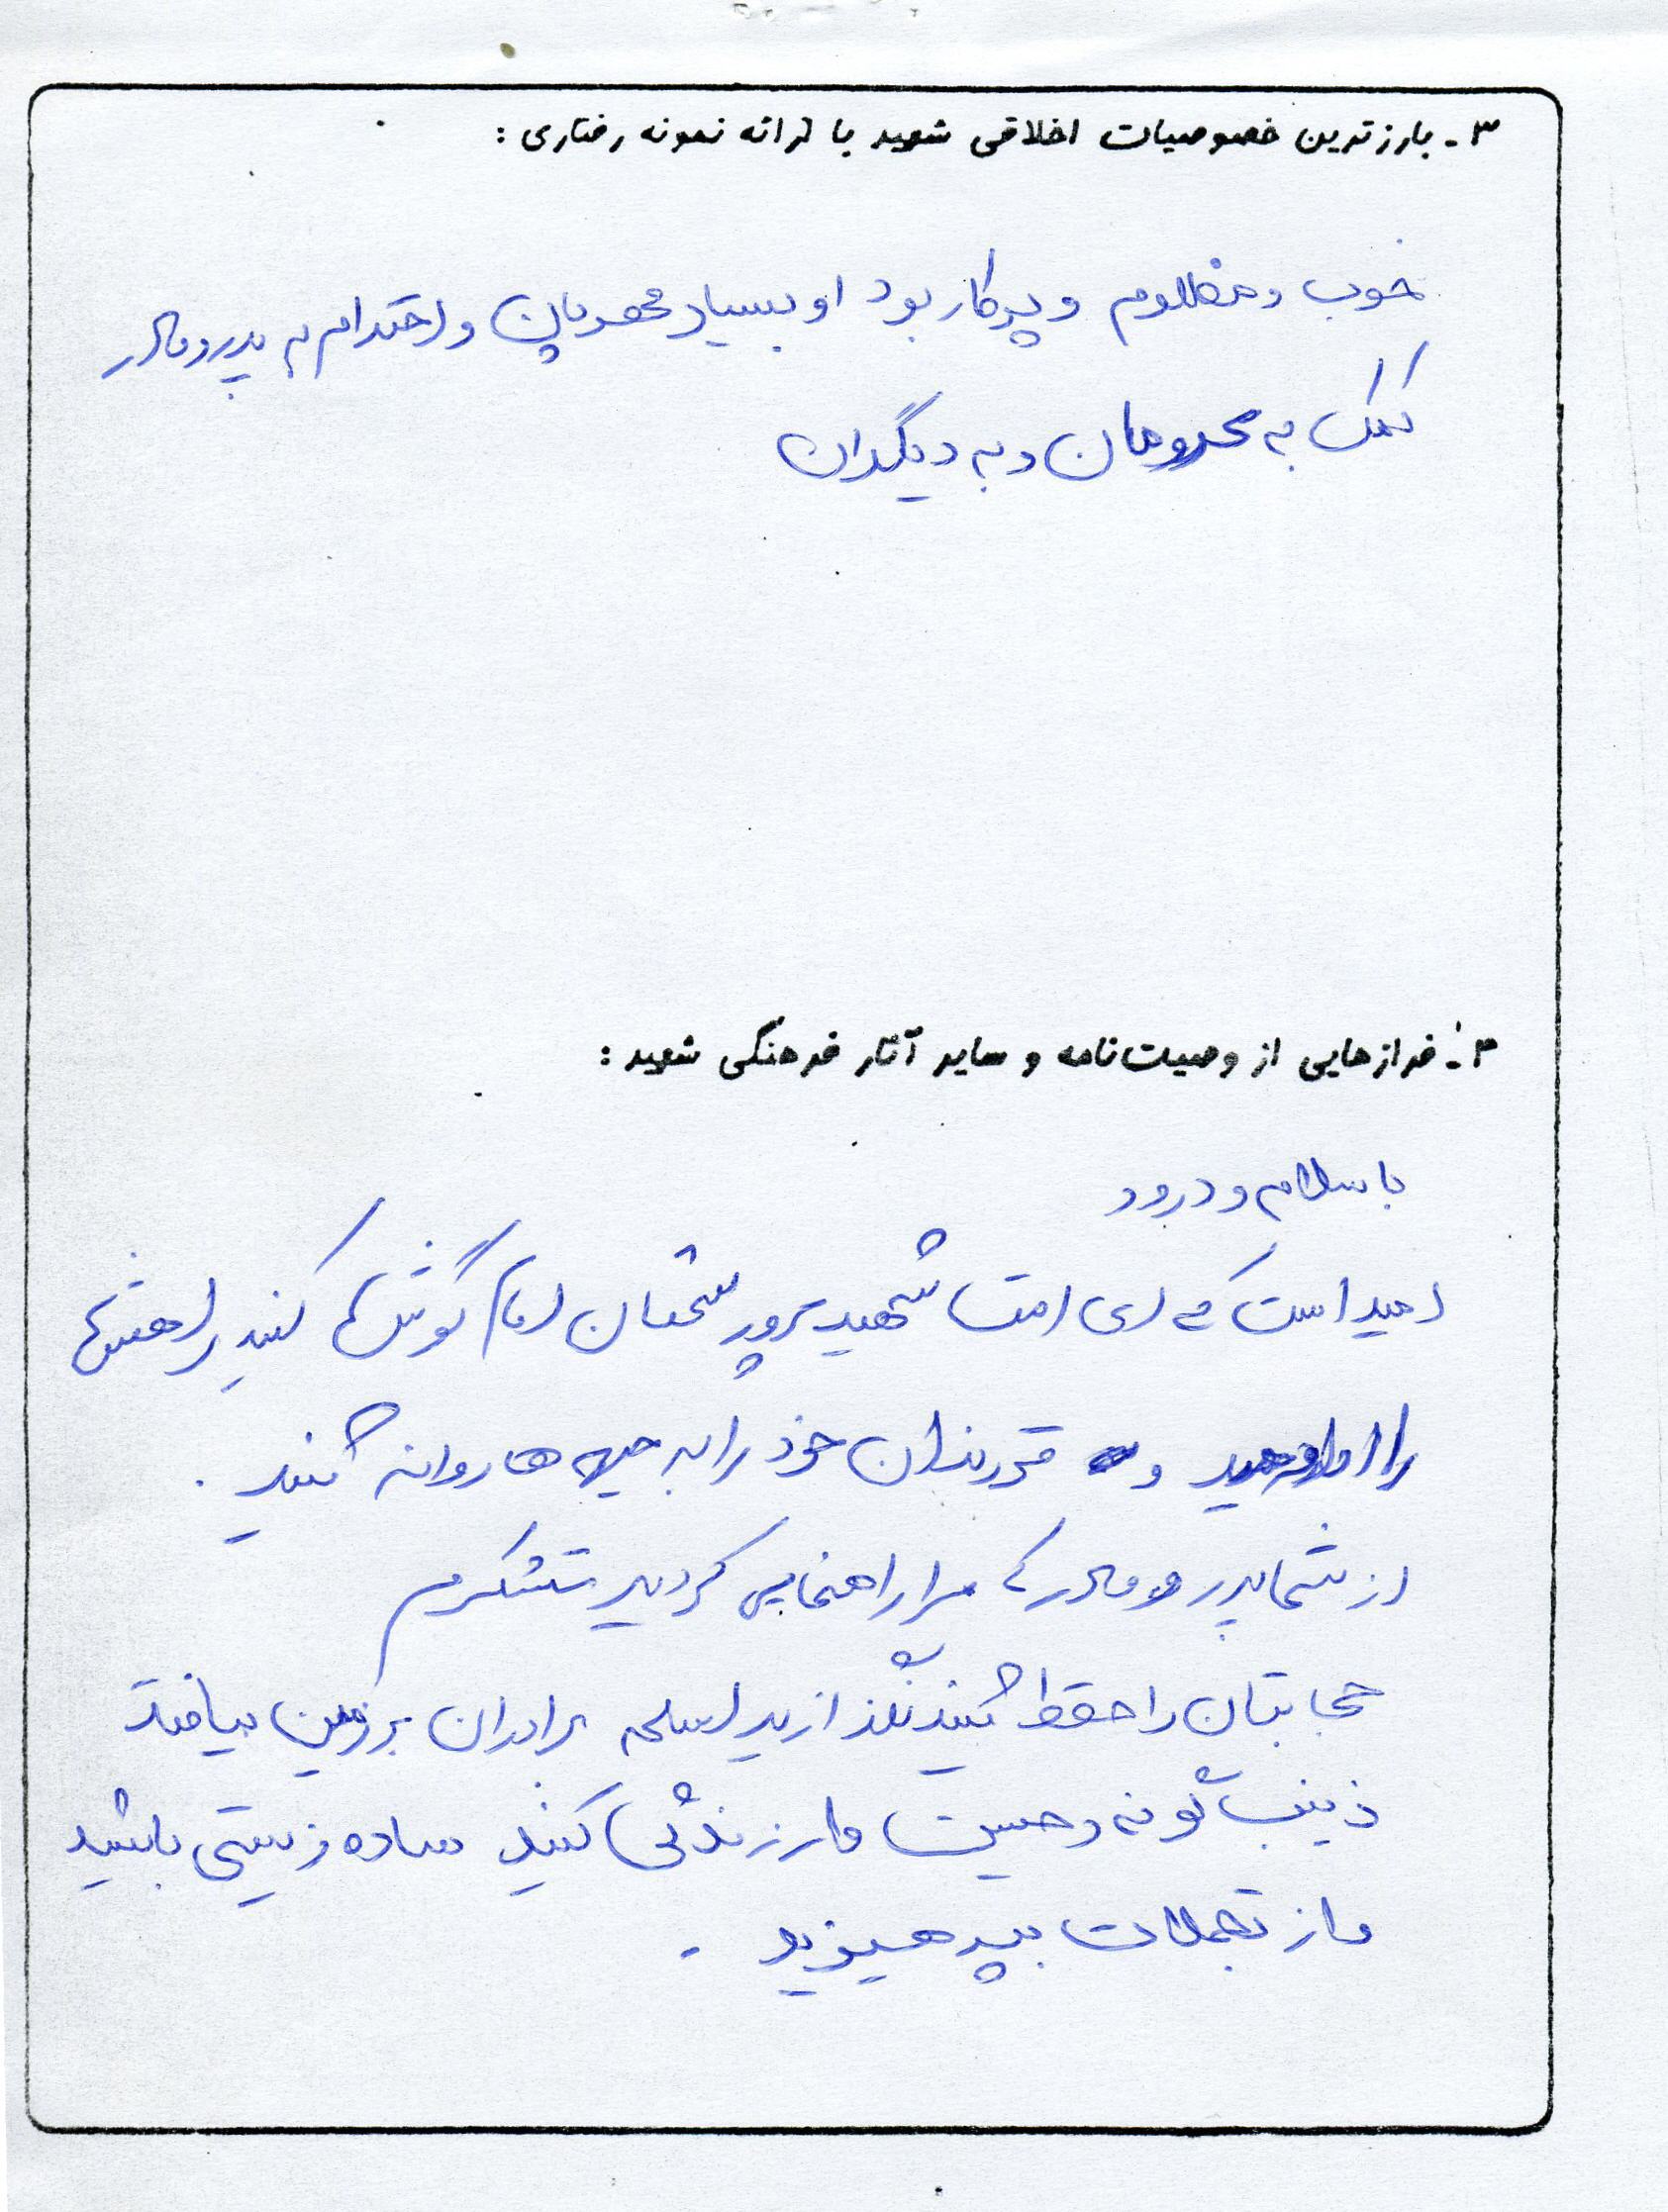 ۳ - بارزترین خصوصیات اخلاقی شهید با ارائه نمونه رفتاری :
خوب و مظلوم و پرکار بود او بسیار مهربان و احترام به پدر و مادر
کمک به محرومان و به دیگران
۴ - فرازهایی از وصیت‌نامه و سایر آثار فرهنگی شهید :
با سلام و درود
امید است که ای امت شهید پرور سخنان امام گوش کنید راهش
را ادامه دهید و فرزندان خود را به جبهه ها روانه کنید .
از شما پدر و مادر که مرا راهنمایی کردید متشکرم
حجابتان را حفظ کنید نگذارید اسلحه برادران بر زمین بیافتد
زینب گونه و حسین وار زندگی کنید ساده زیستی باشید
و از تجملات بپرهیزید .